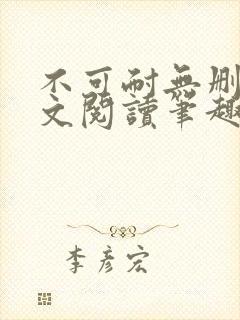 不可耐無刪
文閱讀筆趣
李彥宏